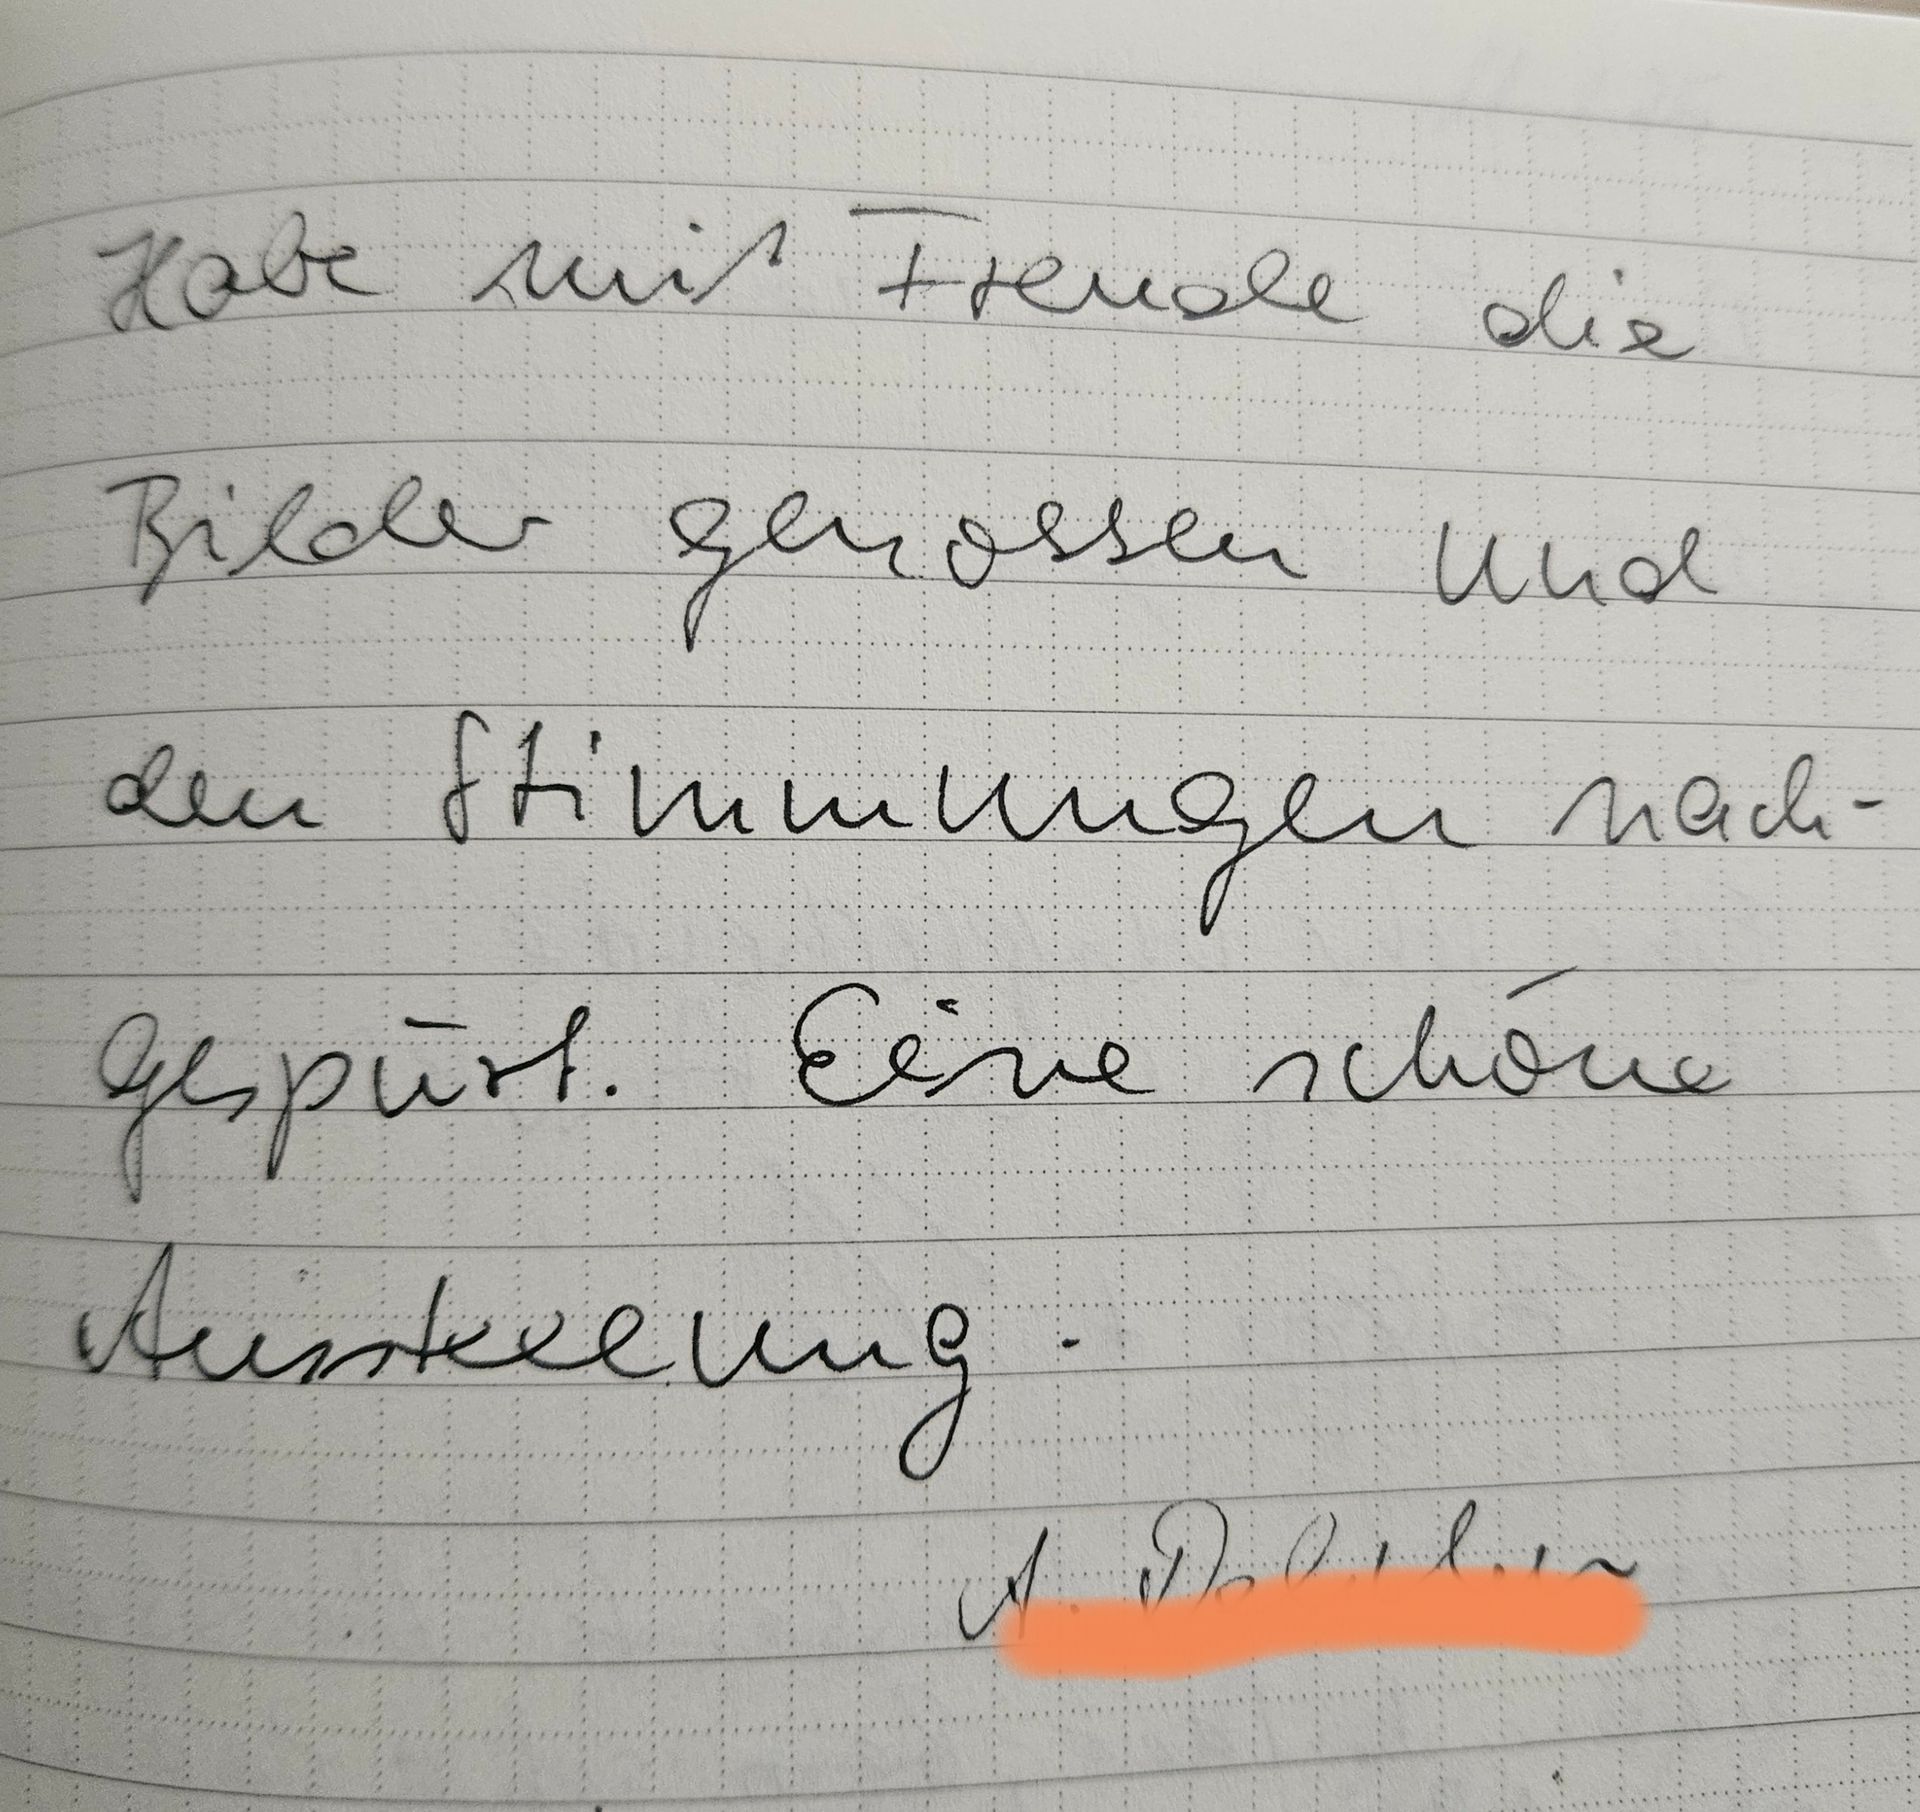 Habe mit Freude die
Bilder genossen und
den Stimmungen nach-
gespürt. Eine schöne
Ausstellung.
A.